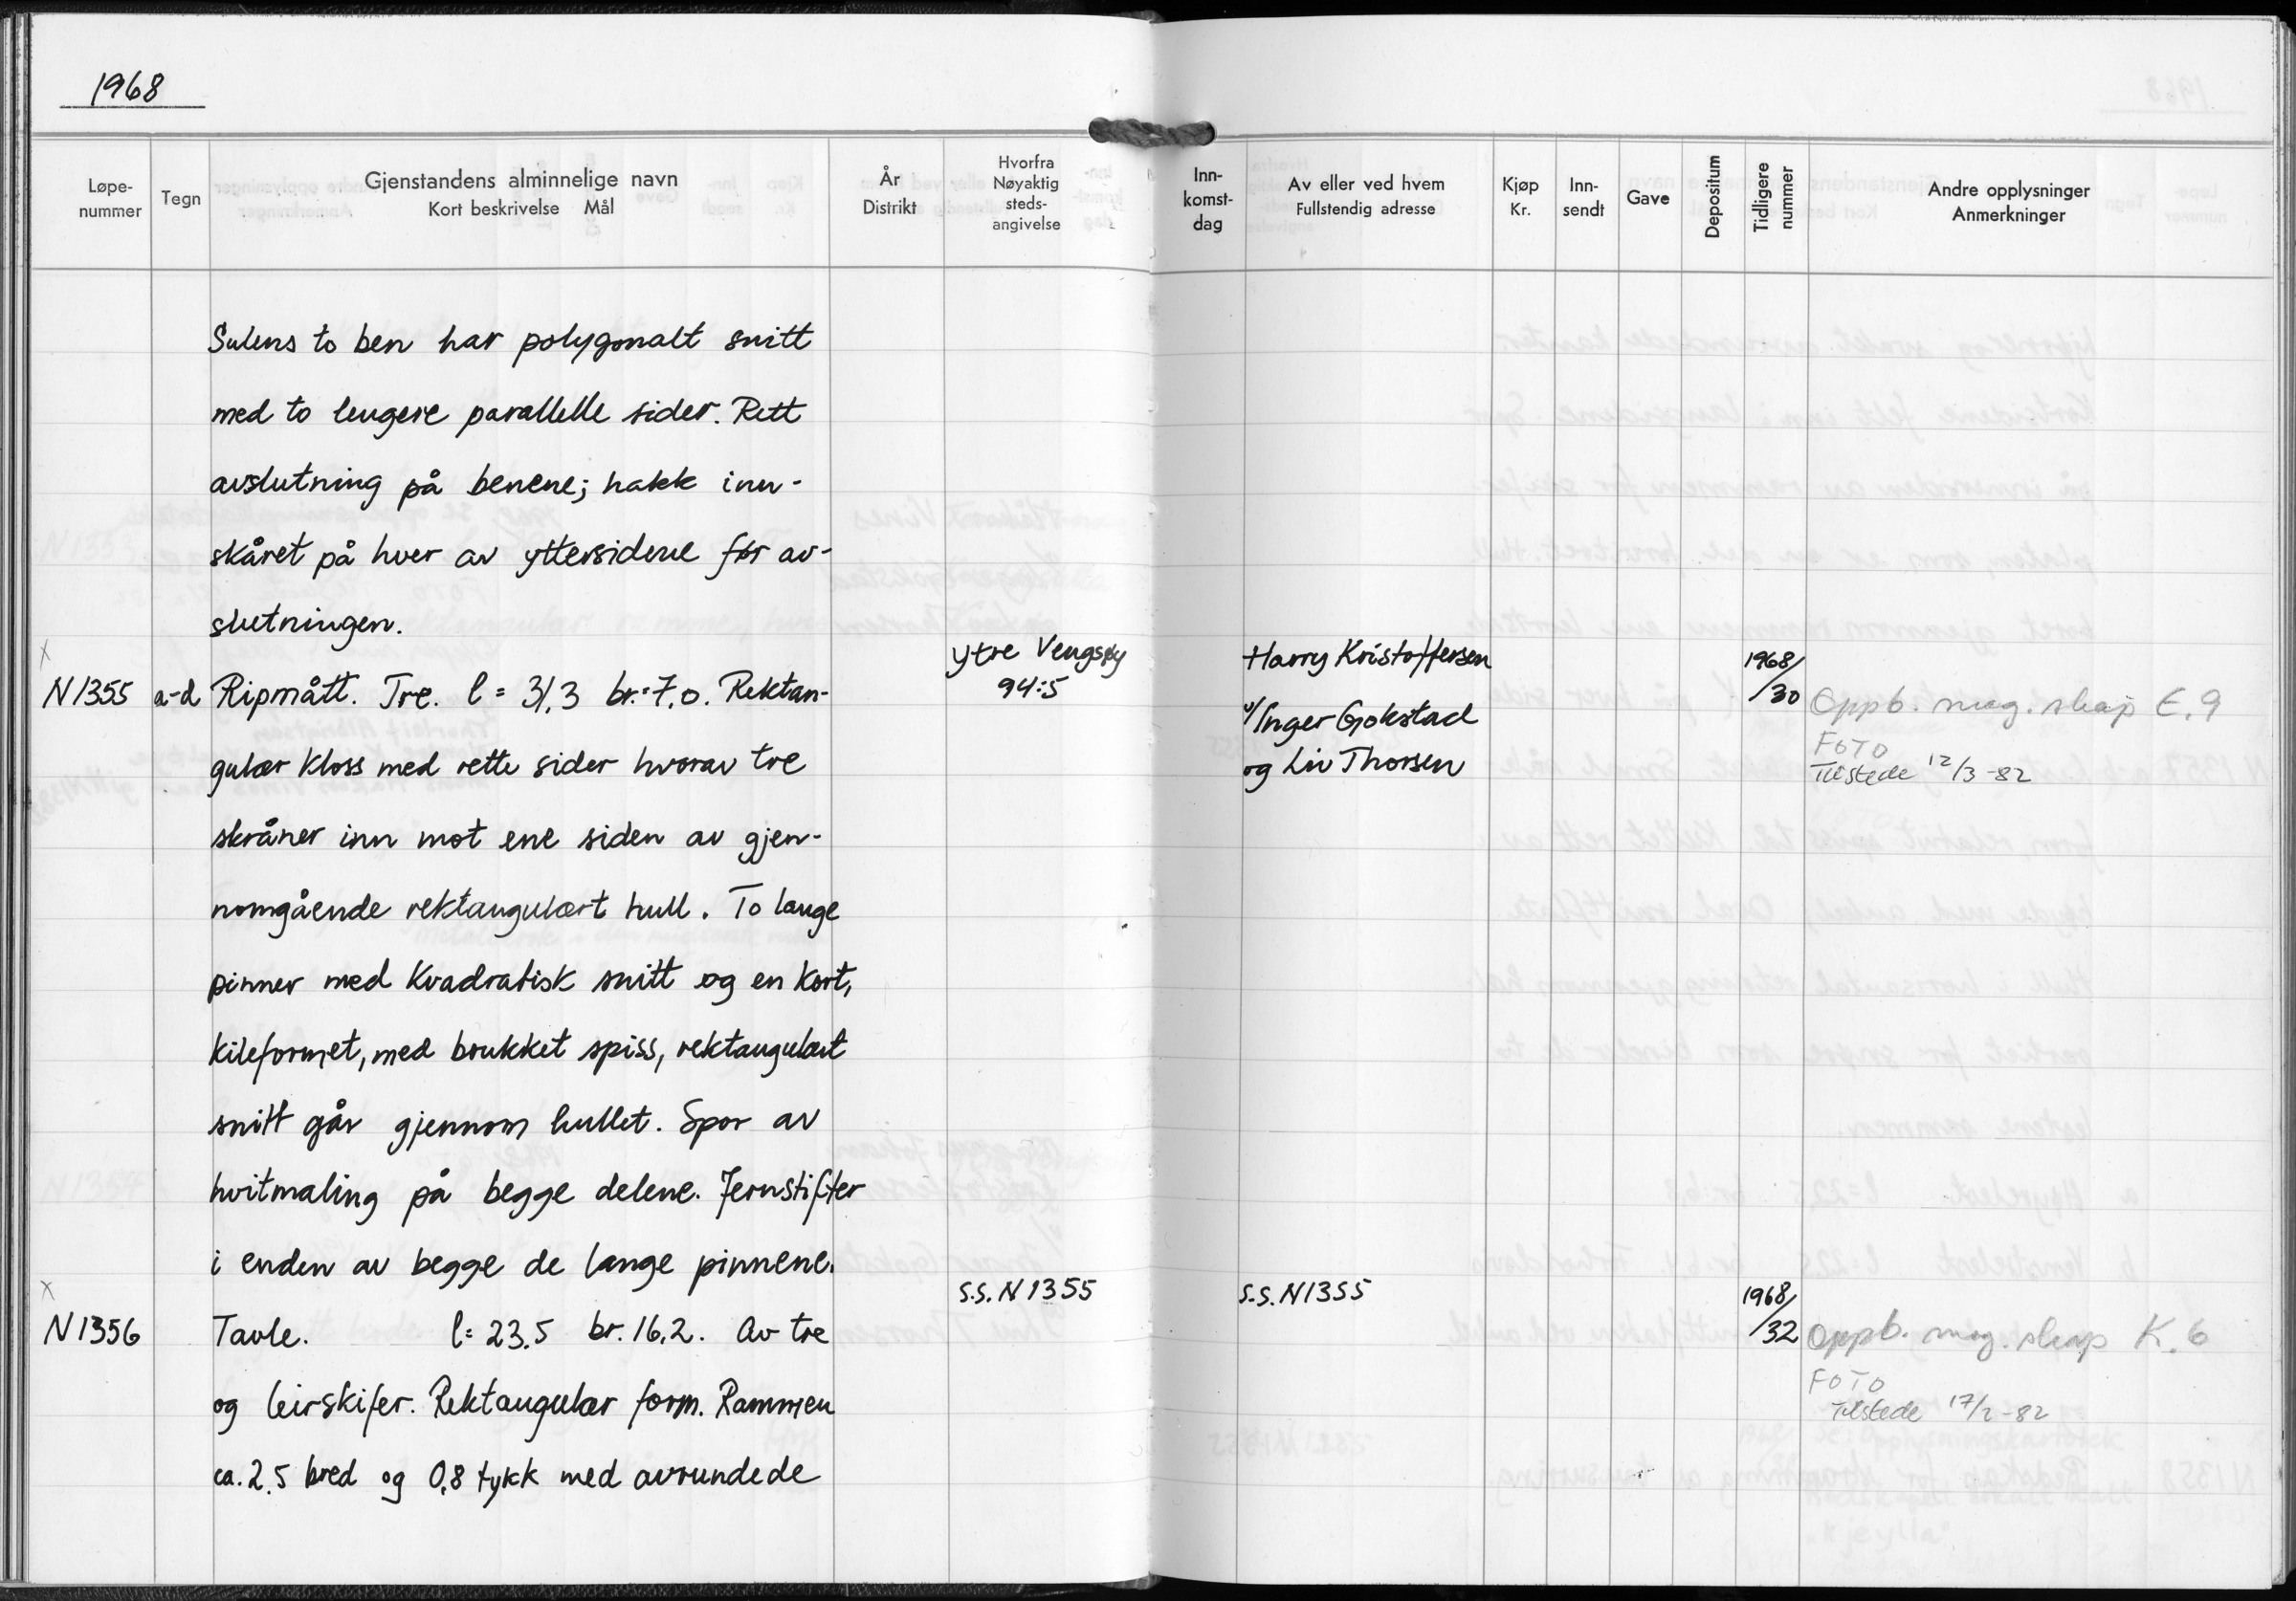 1968
Løpe-
nummer
Tegn
Gjenstandens alminnelige navn
Kort beskrivelse Mål
År
Distrikt
Hvorfra
Nøyaktig
steds-
angivelse
Inn-
komst-
dag
Av eller ved hvem
Fullstendig adresse
Kjøp
Kr.
Inn-
sendt
Gave
Depositum
Tidligere
nummer
Andre opplysninger
Anmerkninger
Sulens to ben har polygonalt snitt
med to lengere parallelle sider. Rett
avslutning på benene; hakk inn-
skåret på hver av yttersidene før av-
slutningen.
x
N1355 a-d Ripmått. Tre. l = 31,3 br.=7,0. Rektan-
gulær kloss med rette sider hvorav tre
skråner inn mot ene siden av gjen-
nomgående rektangulært hull. To lange
pinner med kvadratisk snitt og en kort,
kileformet, med brukket spiss, rektangulært
snitt går gjennom hullet. Spor av
hvitmaling på begge delene. Jernstifter
i enden av begge de lange pinnene.
Ytre Vengsøy
94:5
Harry Kristoffersen
v/Inger Gokstad
og Liv Thorsen
1968/
/30
Oppb. mag. skap E.9
FOTO
Tilstede 12/3-82
x
N1356 Tavle. l= 23.5 br. 16,2. Av tre
og leirskifer. Rektangulær form. Rammen
ca. 2,5 bred og 0,8 tykk med avrundede
s.s. N1355
s.s. N1355
1968/
/32
Oppb. mag. skap K.6
FOTO
Tilstede 17/2-82